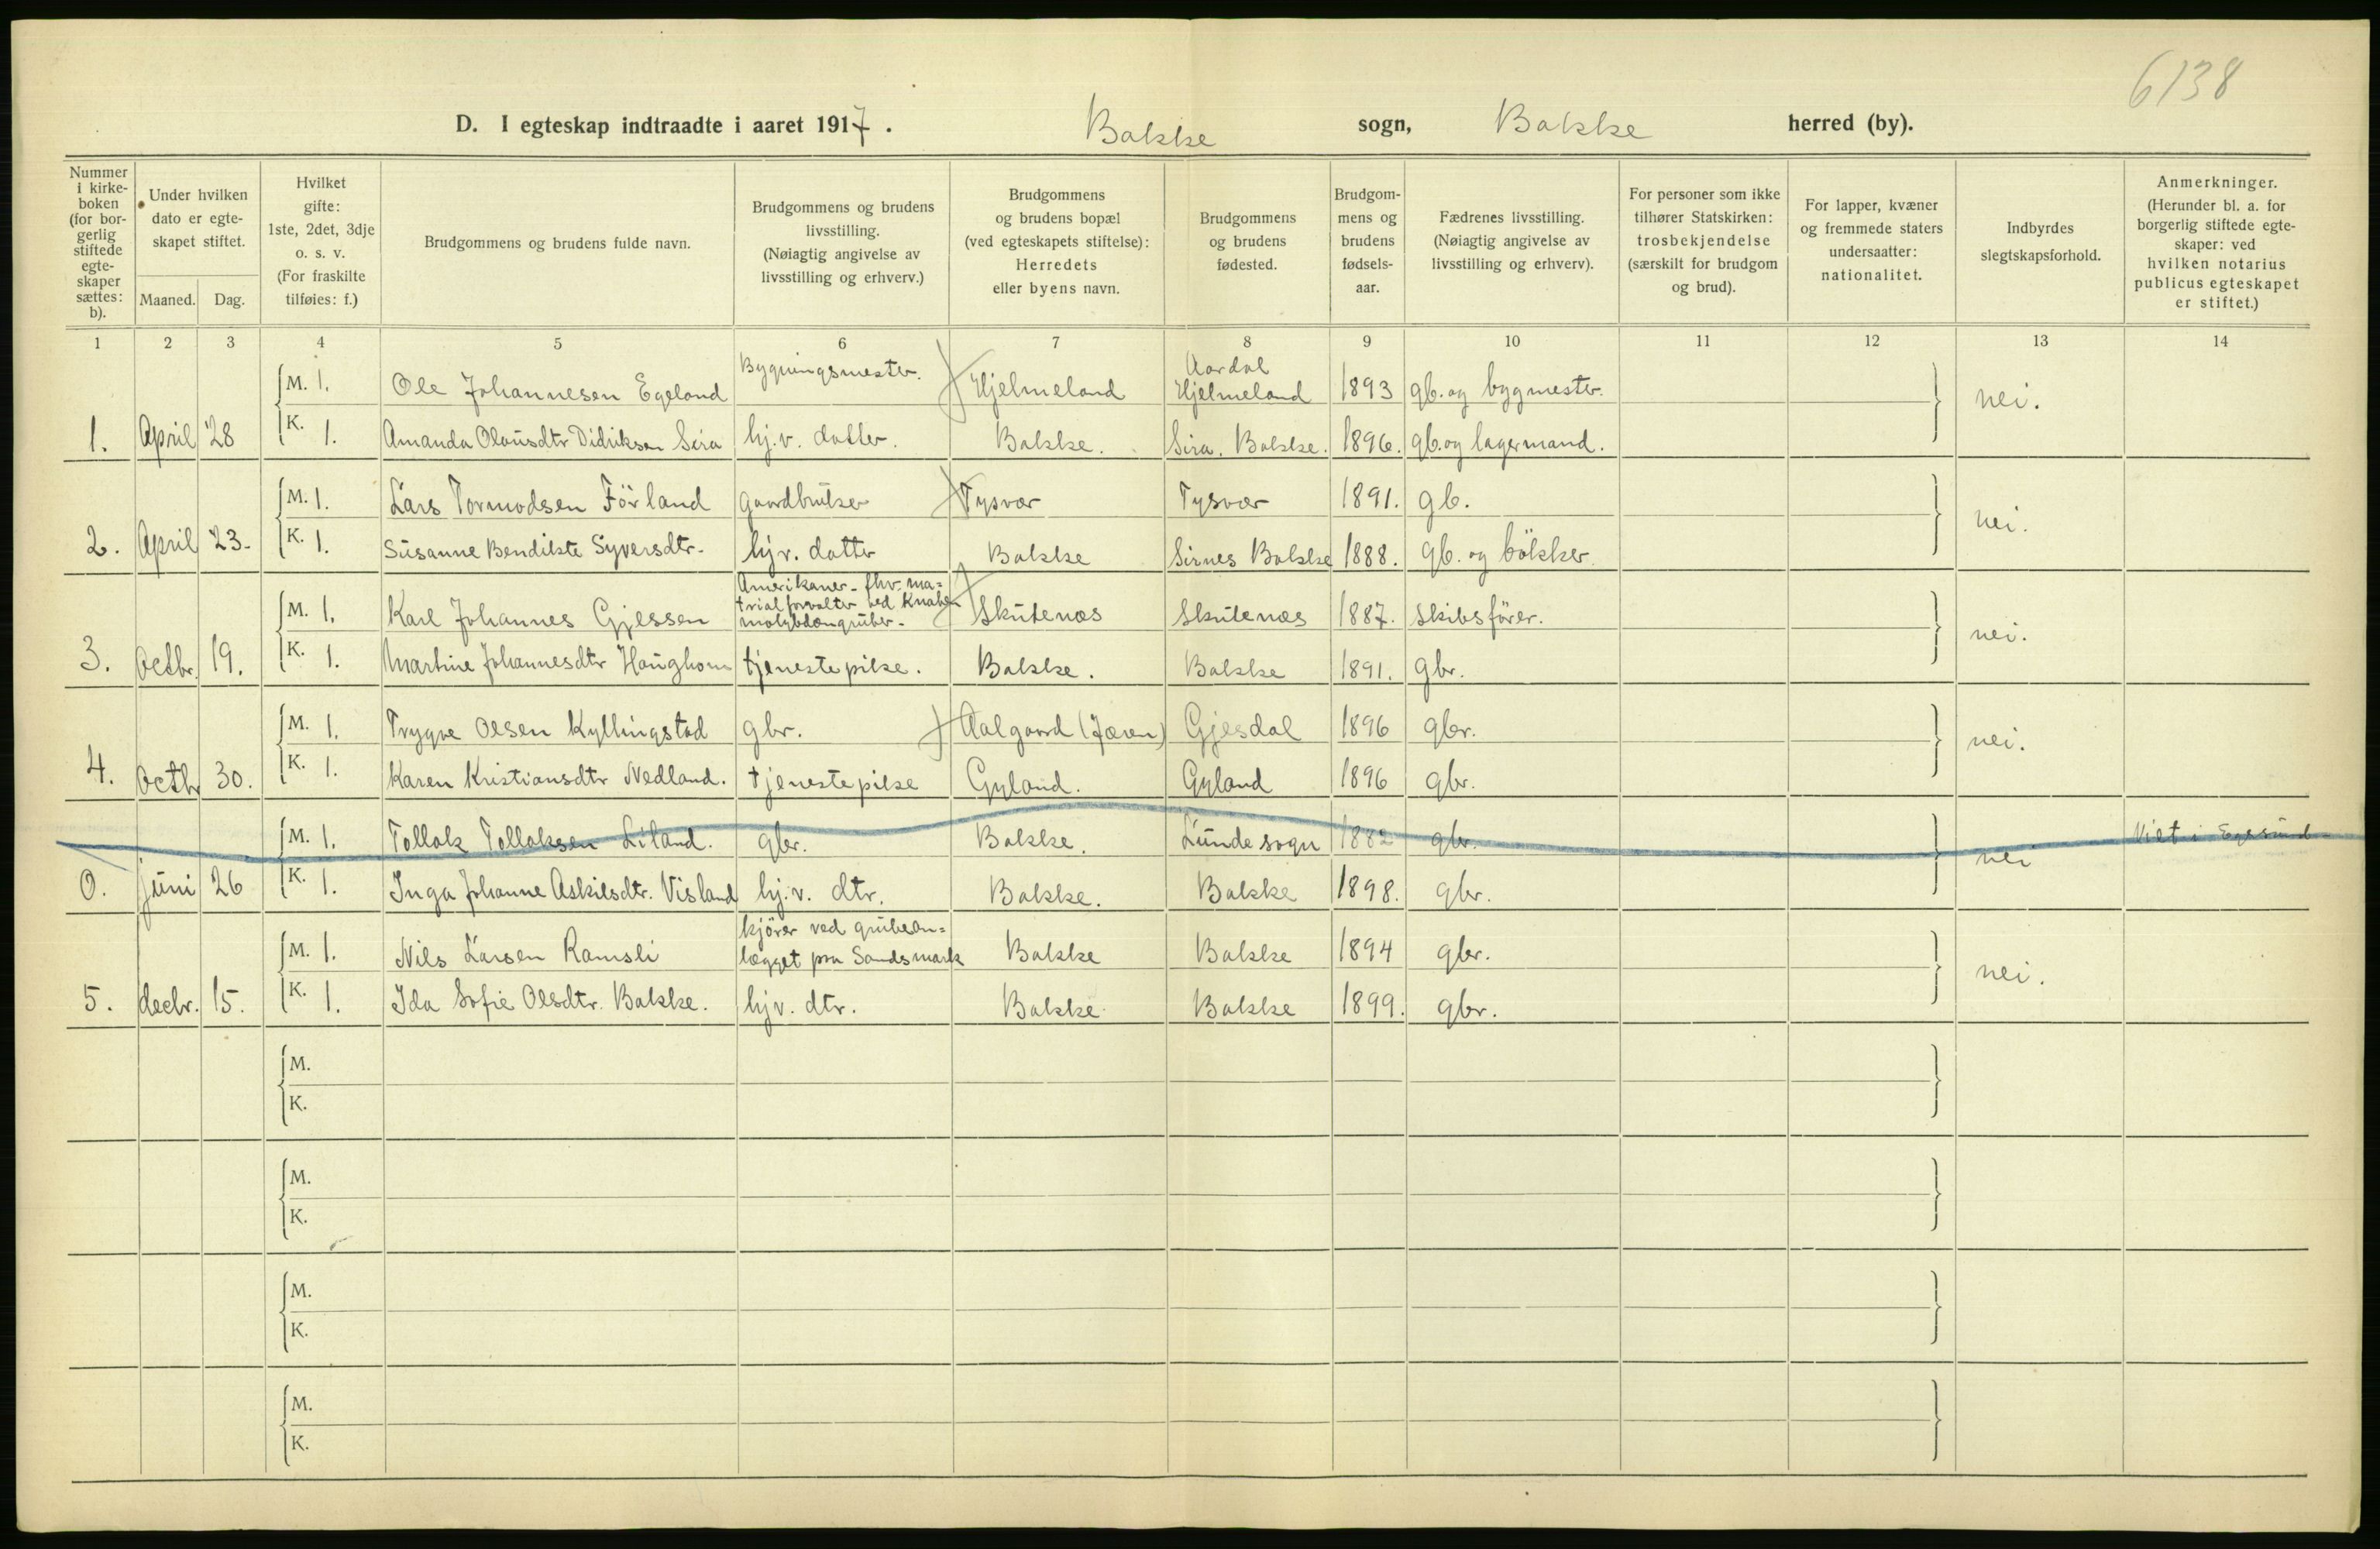 6138
D. I egteskap indtraadte i aaret 1917. Bakke sogn, Bakke herred (by).
Nummer i kirke-boken (for bor-gerlig stiftede egte-skaper sættes: b).
Under hvilken dato er egte-skapet stiftet.
Maaned. Dag.
Hvilket gifte: 1ste, 2det, 3dje o. s. v. (For fraskilte tilføies: f.)
Brudgommens og brudens fulde navn.
Brudgommens og brudens livsstilling. (Nøiagtig angivelse av livsstilling og erhverv.)
Brudgommens og brudens bopæl (ved egteskapets stiftelse): Herredets eller byens navn.
Brudgommens og brudens fødested.
Brudgom-mens og brudens fødsels-aar.
Fædrenes livsstilling. (Nøiagtig angivelse av livsstilling og erhverv).
For personer som ikke tilhører Statskirken: trosbekjendelse (særskilt for brudgom og brud).
For lapper, kvæner og fremmede staters undersaatter: nationalitet.
Indbyrdes slegtskapsforhold.
Anmerkninger. (Herunder bl. a. for borgerlig stiftede egte-skaper: ved hvilken notarius publicus egteskapet er stiftet.)
1 2 3 4 5 6 7 8 9 10 11 12 13 14
M. 1. Ole Johannesen Egeland Bygningsmester. Hjelmeland Aardal Hjelmeland 1893 gb. og bygmester. nei.
1. April 28 K. 1. Amanda Olausdtr Didriksen Sira hj.v. datter. Bakke. Sira. Bakke. 1896. gb. og lagermand.
M. 1. Lars Tormodsen Förland gaardbruker Tysvær Tysvær 1891. gb. nei.
2. April 23. K. 1. Susanne Bendikte Syversdtr. hj.v. datter Bakke Sirnes Bakke 1888. gb. og bökker
M. 1. Karl Johannes Gjessen Amerikaner - fhv. ma=
trialforvalter ved Knaben
molybdængruber. Skutenæs Skutenæs 1887. Skibsförer. nei.
3. Octbr. 19. K. 1. Martine Johannesdtr Haughom tjenestepike. Bakke. Bakke 1891. gbr.
M. 1. Trygve Olsen Kyllingstad gbr. Aalgaard (Jæren) Gjesdal 1896 gbr. nei.
4. Octbr 30. K. 1. Karen Kristiansdtr Nedland. tjenestepike Gyland. Gyland 1896 gbr.
M. 1. Tollak Tollaksen Liland. gbr. Bakke. Lunde sogn 1882 gbr. nei Viet i Egesund
0. juni 26 K. 1. Inga Johanne Askilsdtr. Visland hj.v. dtr. Bakke. Bakke 1898. gbr.
M. 1. Nils Larsen Ramsli kjörer ved grubean=
lægget paa Sandsmark Bakke Bakke 1894 gbr. nei.
5. decbr. 15. K. 1. Ida Sofie Olsdtr. Bakke. hjv. dtr. Bakke Bakke 1899. gbr.
M.
K.
M.
K.
M.
K.
M.
K.